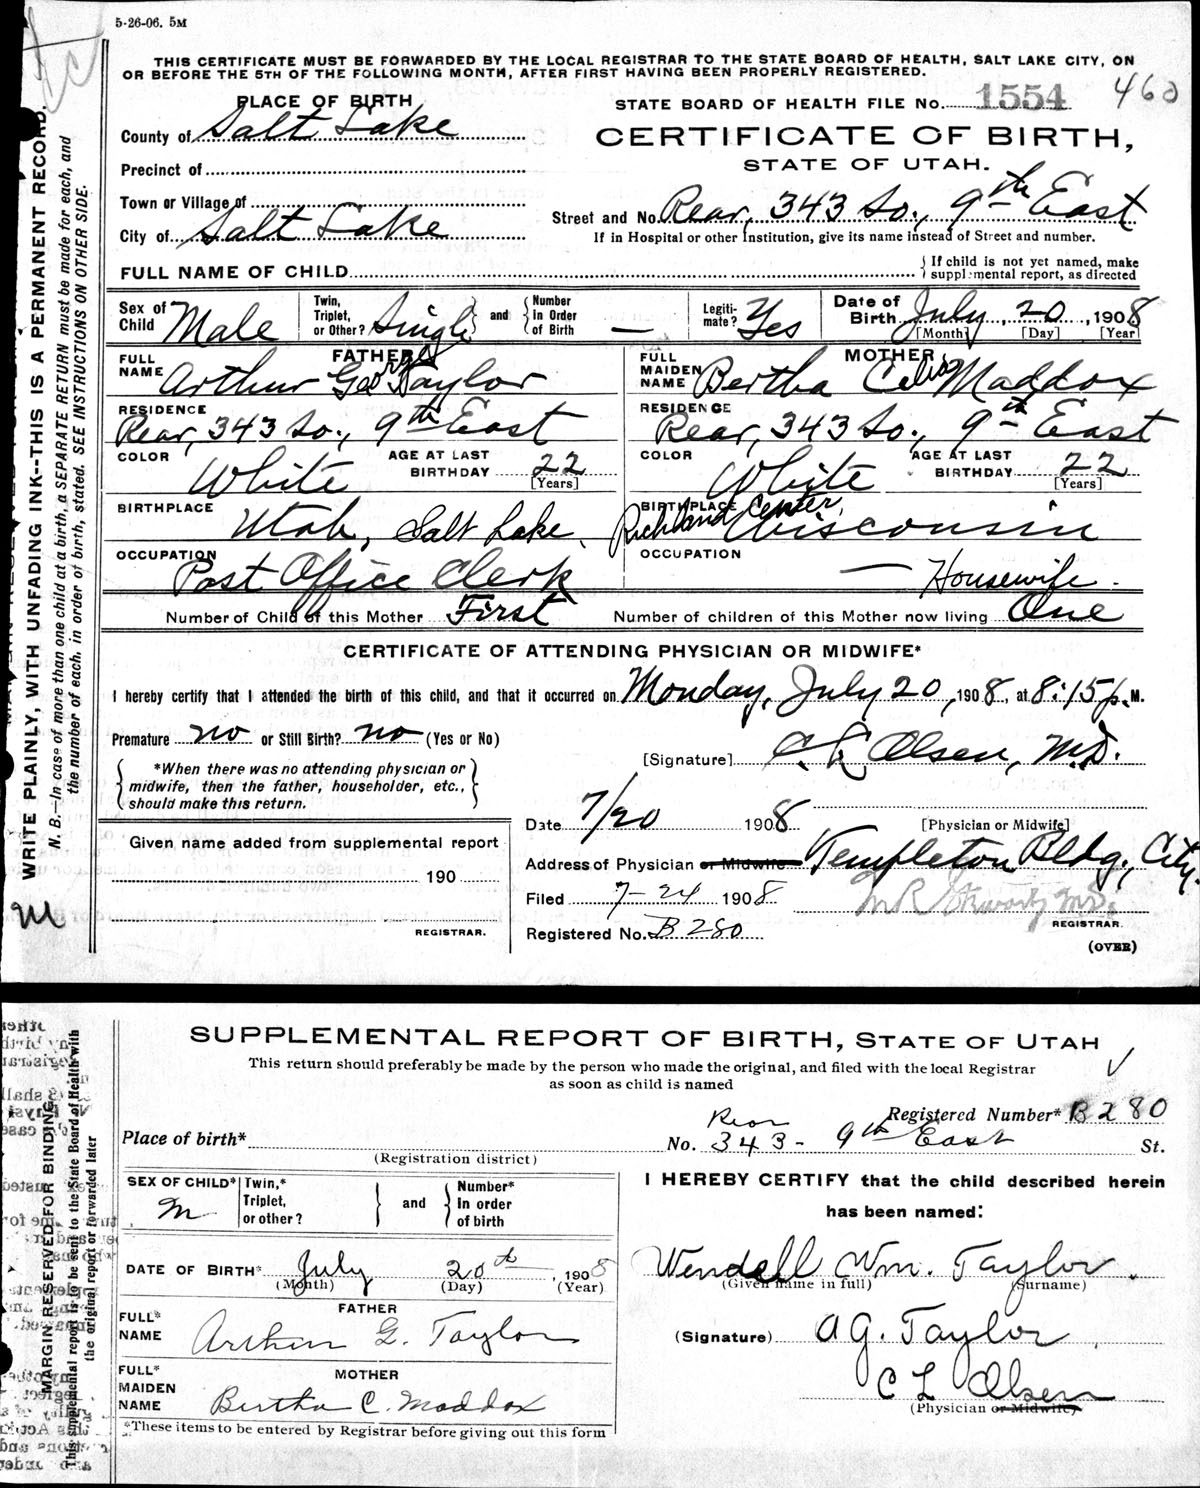 5-26-06. 5M
THIS CERTIFICATE MUST BE FORWARDED BY THE LOCAL REGISTRAR TO THE STATE BOARD OF HEALTH, SALT LAKE CITY, ON
OR BEFORE THE 5TH OF THE FOLLOWING MONTH, AFTER FIRST HAVING BEEN PROPERLY REGISTERED.
PLACE OF BIRTH
STATE BOARD OF HEALTH FILE No. 1554 460
County of Salt Lake
CERTIFICATE OF BIRTH,
STATE OF UTAH.
Precinct of
Town or Village of
City of Salt Lake
Street and No. Rear, 343 So., 9th East
If in Hospital or other Institution, give its name instead of Street and number.
FULL NAME OF CHILD
If child is not yet named, make
supplemental report, as directed
Sex of Child Male
Twin, Triplet, or Other? Single
and
Number In Order of Birth —
Legiti-mate? Yes
Date of Birth July, 20, 1908
[Month] [Day] [Year]
FATHER
FULL NAME Arthur George Taylor
MOTHER
FULL MAIDEN NAME Bertha Celia Maddox
RESIDENCE Rear, 343 So., 9th East
RESIDENCE Rear, 343 So., 9th East
COLOR White AGE AT LAST BIRTHDAY 22 [Years]
COLOR White AGE AT LAST BIRTHDAY 22 [Years]
BIRTHPLACE Utah, Salt Lake.
BIRTHPLACE Richland Center, Wisconsin
OCCUPATION Post Office Clerk
OCCUPATION — Housewife.
Number of Child of this Mother First
Number of children of this Mother now living One
CERTIFICATE OF ATTENDING PHYSICIAN OR MIDWIFE*
I hereby certify that I attended the birth of this child, and that it occurred on Monday, July 20, 1908, at 8:15 p. M.
Premature no or Still Birth? no (Yes or No)
[Signature] C. L. Olsen, M.D.
*When there was no attending physician or
midwife, then the father, householder, etc.,
should make this return.
Date 7/20 1908
[Physician or Midwife]
Given name added from supplemental report
190
REGISTRAR.
Address of Physician or Midwife Templeton Bldg., City.
Filed 7-24 1908
M.D.
REGISTRAR.
Registered No. B 280
(OVER)
WRITE PLAINLY, WITH UNFADING INK--THIS IS A PERMANENT RECORD.
N. B.—In case of more than one child at a birth, a SEPARATE RETURN must be made for each, and
the number of each, in order of birth, stated. SEE INSTRUCTIONS ON OTHER SIDE.
M
SUPPLEMENTAL REPORT OF BIRTH, STATE OF UTAH
This return should preferably be made by the person who made the original, and filed with the local Registrar
as soon as child is named
Registered Number* B 280
Place of birth*
(Registration district)
Rear
No. 343 - 9th East St.
SEX OF CHILD* M
Twin,* Triplet, or other?
and
Number* In order of birth
I HEREBY CERTIFY that the child described herein
has been named:
DATE OF BIRTH* July 20th, 1908
(Month) (Day) (Year)
Wendell Wm. Taylor.
(Given name in full) (Surname)
FATHER
FULL* NAME Arthur G. Taylor
(Signature) A G. Taylor
C L Olsen
(Physician or Midwife)
MOTHER
FULL* MAIDEN NAME Bertha C. Maddox
*These items to be entered by Registrar before giving out this form
MARGIN RESERVED FOR BINDING
This supplemental report is to be sent to the State Board of Health with
the original report or forwarded later